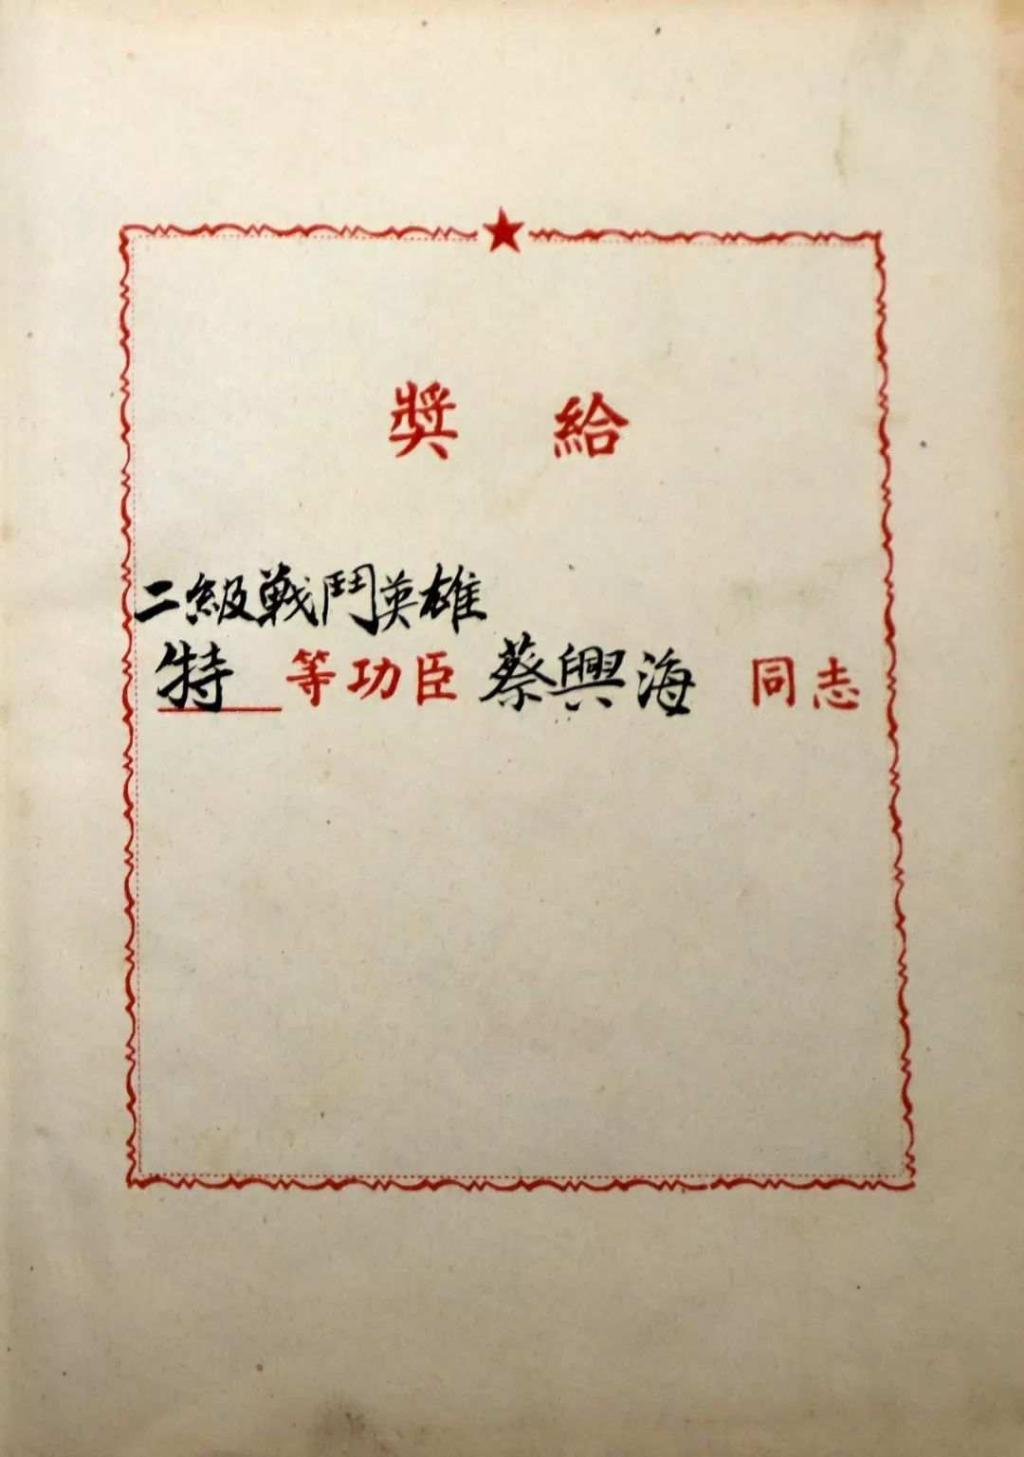 獎 給
二級戰鬥英雄
特 等功臣 蔡興海 同志